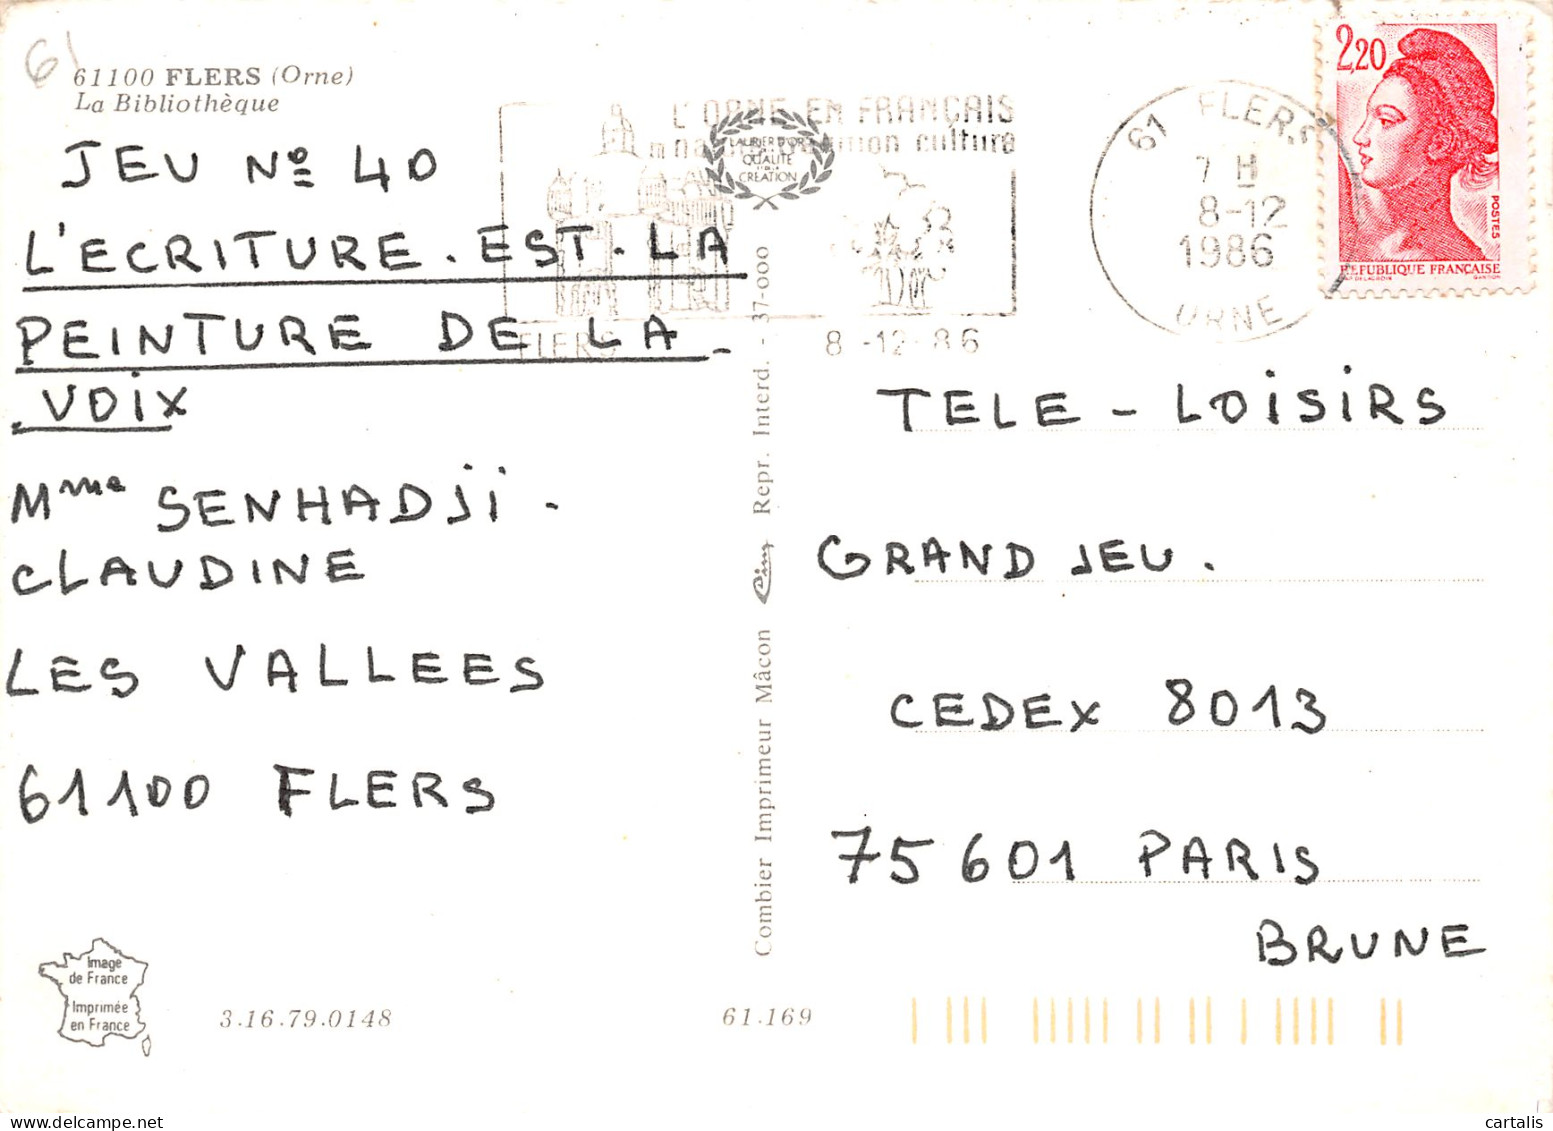 61
61100 FLERS (Orne)
La Bibliothèque
JEU Nº 40
L'ECRITURE. EST. LA
PEINTURE DE LA
VOIX
Mme SENHADJI.
CLAUDINE
LES VALLEES
61100 FLERS
Image
de France
Imprimée
en France
3.16.79.0148
61.169
Combier Imprimeur Mâcon Cim Repr. Interd. - 37-000
L'ORNE EN FRANÇAIS
culture
LAURIER D'OR
QUALITÉ
CREATION
FLERS
8-12-86
61 FLERS
7 H
8-12
1986
ORNE
2,20
POSTES
REPUBLIQUE FRANÇAISE
TELE - LOISIRS
GRAND JEU.
CEDEX 8013
75601 PARIS
BRUNE
cartalis